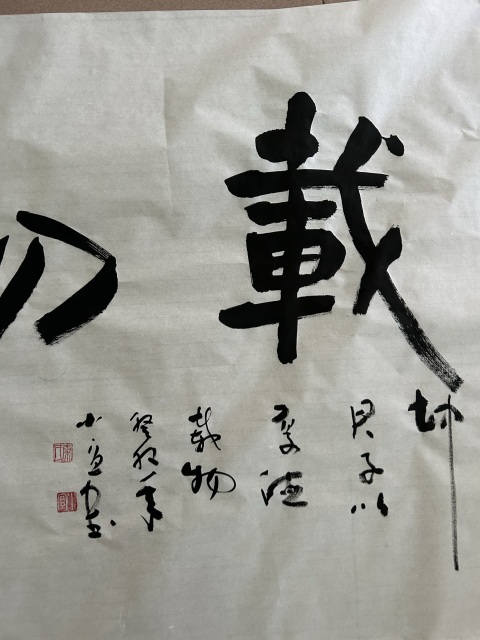 載
坤
君子以
厚德
載物
癸卯年